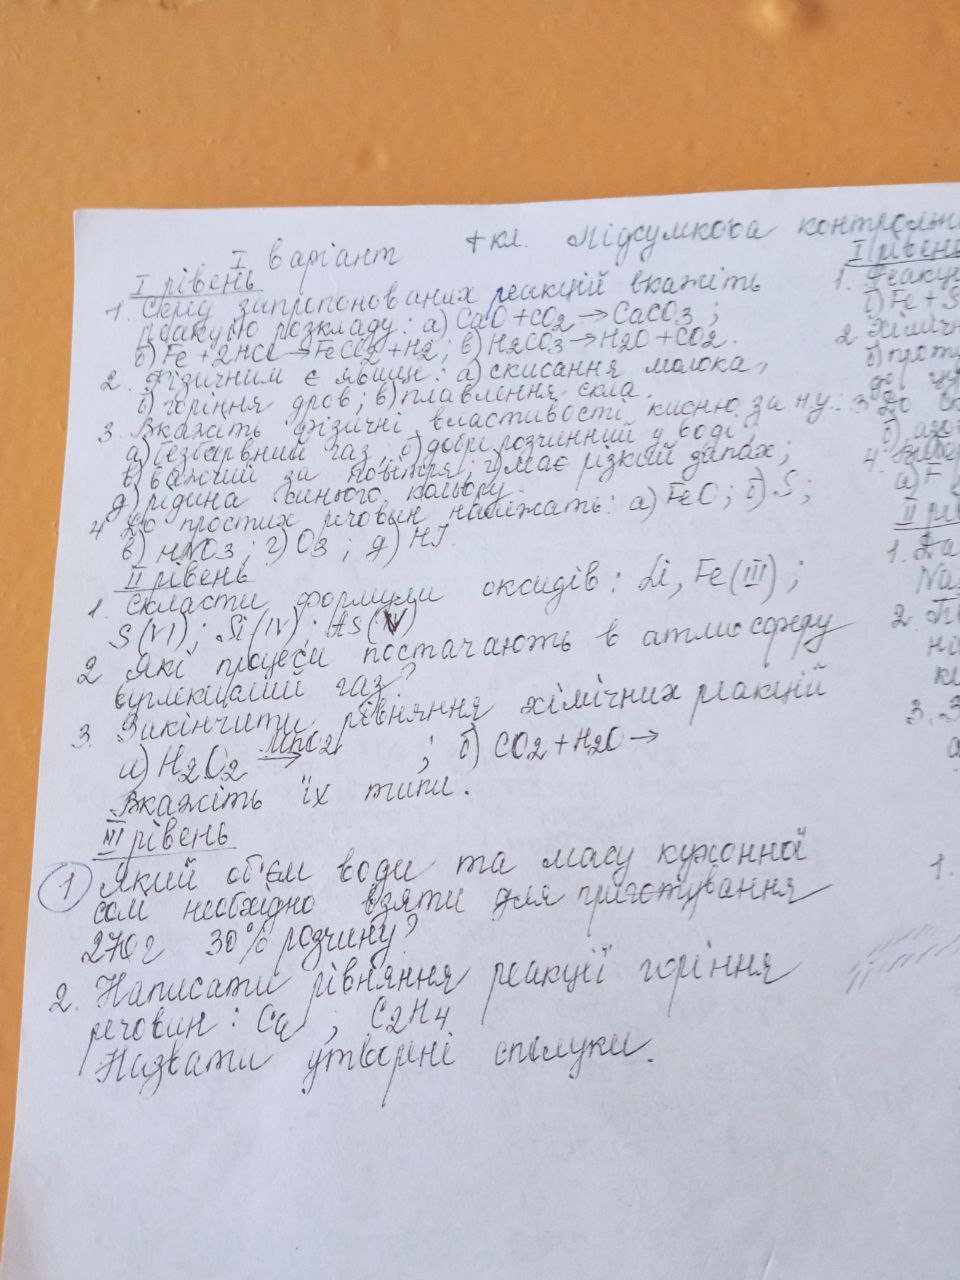 I варіант 7 кл. Підсумкова контрольн
I рівень
1. Серед запропонованих реакцій вкажіть
реакцію розкладу: а) CaO + CO2 → CaCO3 ;
б) Fe + 2HCl → FeCl2 + H2 ; в) H2CO3 → H2O + CO2.
2. Фізичним є явище: а) скисання молока,
б) горіння дров; в) плавлення скла.
3. Вкажіть фізичні властивості кисню за н.у.:
а) безбарвний газ, б) добре розчинний у воді,
в) важчий за повітря; г) має різкий запах;
д) рідина синього кольору.
4 До простих речовин належать: а) FeO ; б) S ;
в) HNO3 ; г) O3 ; д) HI.
II рівень
1. Скласти формули оксидів: Li, Fe (III) ;
S (VI) ; Si (IV) ; As (V)
2 Які процеси постачають в атмосферу
вуглекислий газ?
3. Закінчити рівняння хімічних реакцій
а) H2O2 MnO2→ ; б) CO2 + H2O →
Вкажіть їх типи.
III рівень
1 Який об'єм води та масу кухонної
солі необхідно взяти для приготування
270 г 30% розчину?
2. Написати рівняння реакції горіння
речовин: Ca ; C2H4
Назвати утворні сполуки.
I рівень
1. Реакці
б) Fe + S
2 Хімічн
б) прот
3 До ск
4.
а) F
II рів
1. Да
Na
2.
3. З
а
1.